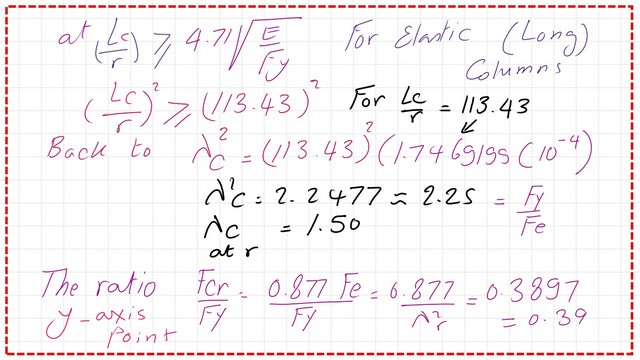 at (Lc/r) ⩾ 4.71 √(E/Fy) For Elastic (Long)
Columns
(Lc/r)² ⩾ (113.43)² For Lc/r = 113.43
Back to λ²c = (113.43)² (1.7469199 (10⁻⁴)
λ²c = 2.2477 ≈ 2.25 = Fy/Fe
λc = 1.50
at r
The ratio Fcr/Fy = 0.877 Fe/Fy = 0.877/λ²r = 0.3897
y-axis = 0.39
Point